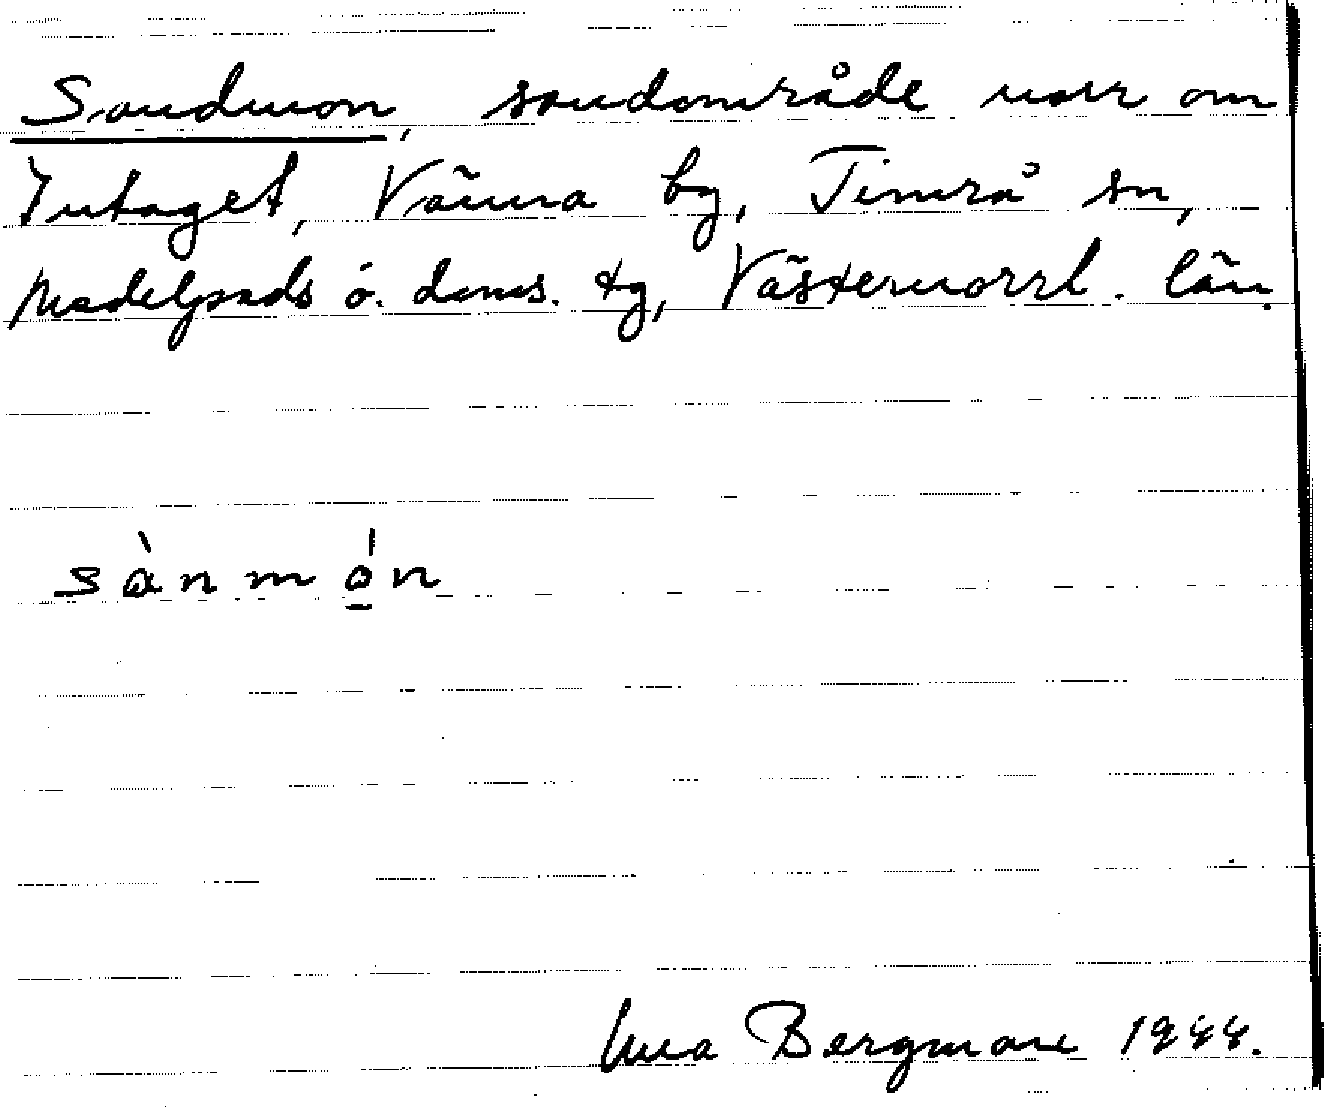 Sandmon, sandområde norr om
Intaget, Vänna by, Timrå sn,
Medelpads ö. doms. tg, Västernorrl. län.
sànmo̲n
Bergman 1944.